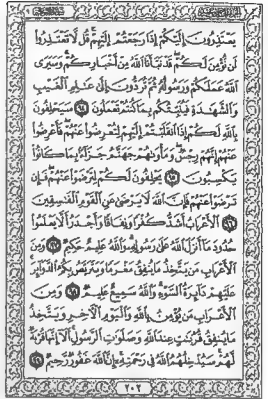 يَعْتَذِرُونَ إِلَيْكُمْ إِذَا رَجَعْتُمْ إِلَيْهِمْ قُل لَّا تَعْتَذِرُوا
لَن نُّؤْمِنَ لَكُمْ قَدْ نَبَّأَنَا اللَّهُ مِنْ أَخْبَارِكُمْ وَسَيَرَى
اللَّهُ عَمَلَكُمْ وَرَسُولُهُ ثُمَّ تُرَدُّونَ إِلَىٰ عَالِمِ الْغَيْبِ
وَالشَّهَادَةِ فَيُنَبِّئُكُم بِمَا كُنتُمْ تَعْمَلُونَ ٩٤ سَيَحْلِفُونَ
بِاللَّهِ لَكُمْ إِذَا انقَلَبْتُمْ إِلَيْهِمْ لِتُعْرِضُوا عَنْهُمْ فَأَعْرِضُوا
عَنْهُمْ إِنَّهُمْ رِجْسٌ وَمَأْوَاهُمْ جَهَنَّمُ جَزَاءً بِمَا كَانُوا
يَكْسِبُونَ ٩٥ يَحْلِفُونَ لَكُمْ لِتَرْضَوْا عَنْهُمْ فَإِن
تَرْضَوْا عَنْهُمْ فَإِنَّ اللَّهَ لَا يَرْضَىٰ عَنِ الْقَوْمِ الْفَاسِقِينَ
٩٦ الْأَعْرَابُ أَشَدُّ كُفْرًا وَنِفَاقًا وَأَجْدَرُ أَلَّا يَعْلَمُوا
حُدُودَ مَا أَنزَلَ اللَّهُ عَلَىٰ رَسُولِهِ وَاللَّهُ عَلِيمٌ حَكِيمٌ ٩٧ وَمِنَ
الْأَعْرَابِ مَن يَتَّخِذُ مَا يُنفِقُ مَغْرَمًا وَيَتَرَبَّصُ بِكُمُ الدَّوَائِرَ
عَلَيْهِمْ دَائِرَةُ السَّوْءِ وَاللَّهُ سَمِيعٌ عَلِيمٌ ٩٨ وَمِنَ
الْأَعْرَابِ مَن يُؤْمِنُ بِاللَّهِ وَالْيَوْمِ الْآخِرِ وَيَتَّخِذُ
مَا يُنفِقُ قُرُبَاتٍ عِندَ اللَّهِ وَصَلَوَاتِ الرَّسُولِ أَلَا إِنَّهَا قُرْبَةٌ
لَّهُمْ سَيُدْخِلُهُمُ اللَّهُ فِي رَحْمَتِهِ إِنَّ اللَّهَ غَفُورٌ رَّحِيمٌ ٩٩
٢٠٢